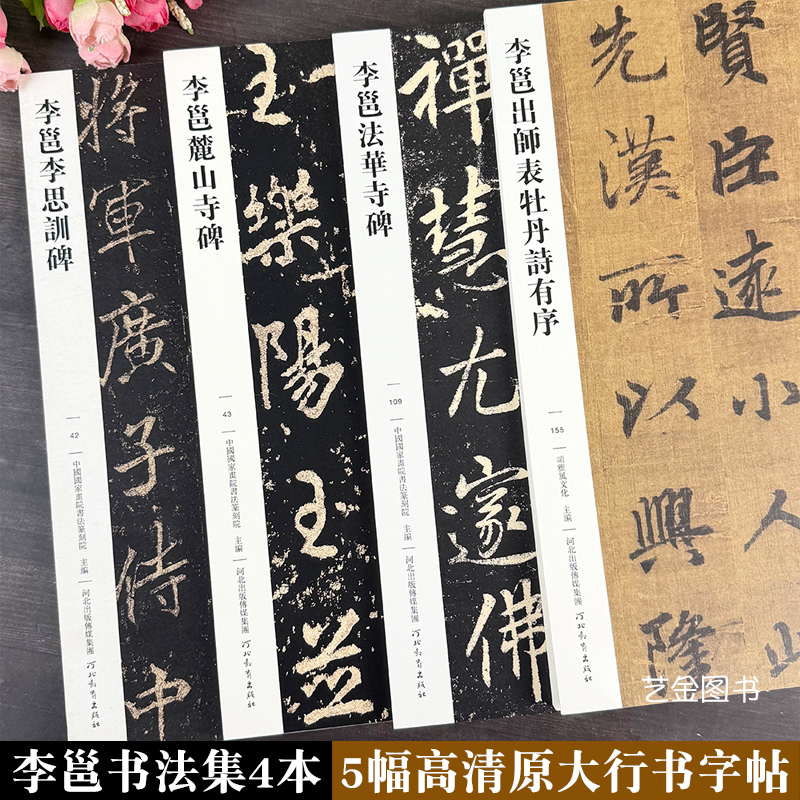 李邕李思訓碑
42
中國國家畫院書法篆刻院 主編
河北出版傳媒集團
河北教育出版社
將軍廣子侍中
李邕麓山寺碑
43
中國國家畫院書法篆刻院 主編
河北出版傳媒集團
河北教育出版社
玉樂陽玉並
李邕法華寺碑
109
中國國家畫院書法篆刻院 主編
河北出版傳媒集團
河北教育出版社
禪慧尤邃佛
李邕出師表牡丹詩有序
155
頌雅風文化 主編
河北出版傳媒集團
河北教育出版社
賢臣遠小人
先漢所以興隆
艺金图书
李邕书法集4本
5幅高清原大行书字帖